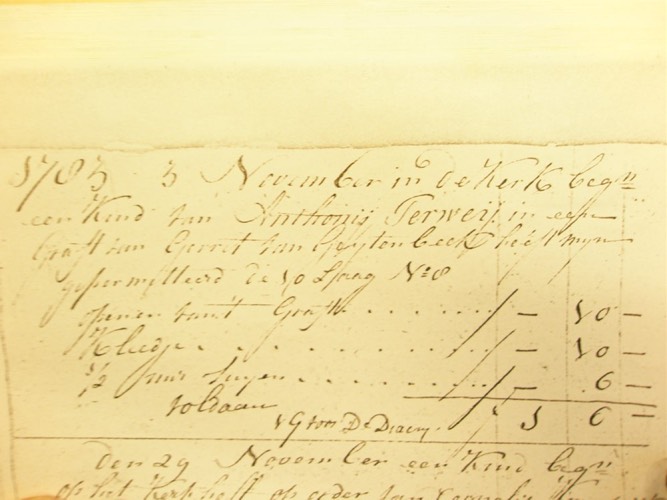 1783 3 November in de Kerk begn
een Kind van Anthonij Terweij in een
Graft van Gerret van Seytenbeek heeft mijn
gepermitteerd de 10 Laag No 8
openen van't Graft. . . . . . . / — 10 —
Kleedje . . . . . . . . . . . / — 10 —
1/2 uur luyen . . . . . . . / — 6 —
voldaan
1 G voor De Diacny. / 1 6 —
den 29 November een Kind begn
op het Kerkhoft op order van